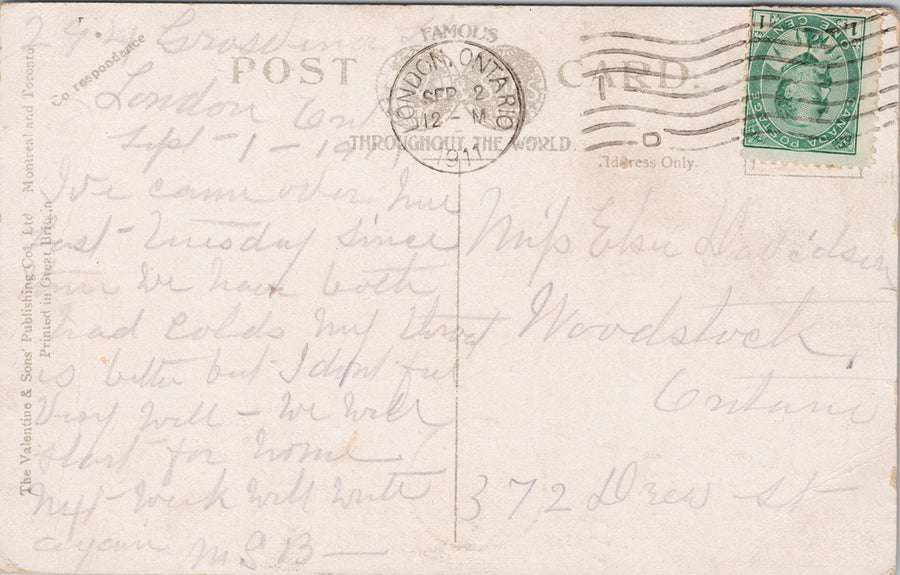 FAMOUS
POST CARD.
THROUGHOUT THE WORLD.
Correspondence
Address Only.
The Valentine & Sons' Publishing Co., Ltd Montreal and Toronto
Printed in Great Britain
LONDON, ONTARIO
SEP 2
12 - M
1911
1 ONE CENT 1
CANADA POSTAGE
London Ont
Sept - 1 - 1911
We came over here
last - Tuesday since
then We have both
had colds My throat
is better but I dont feel
Very Well - We Will
start for home
next Week Will Write
again M.S.B -
Miss Elsie Davidson
Woodstock,
Ontario
372 Drew St